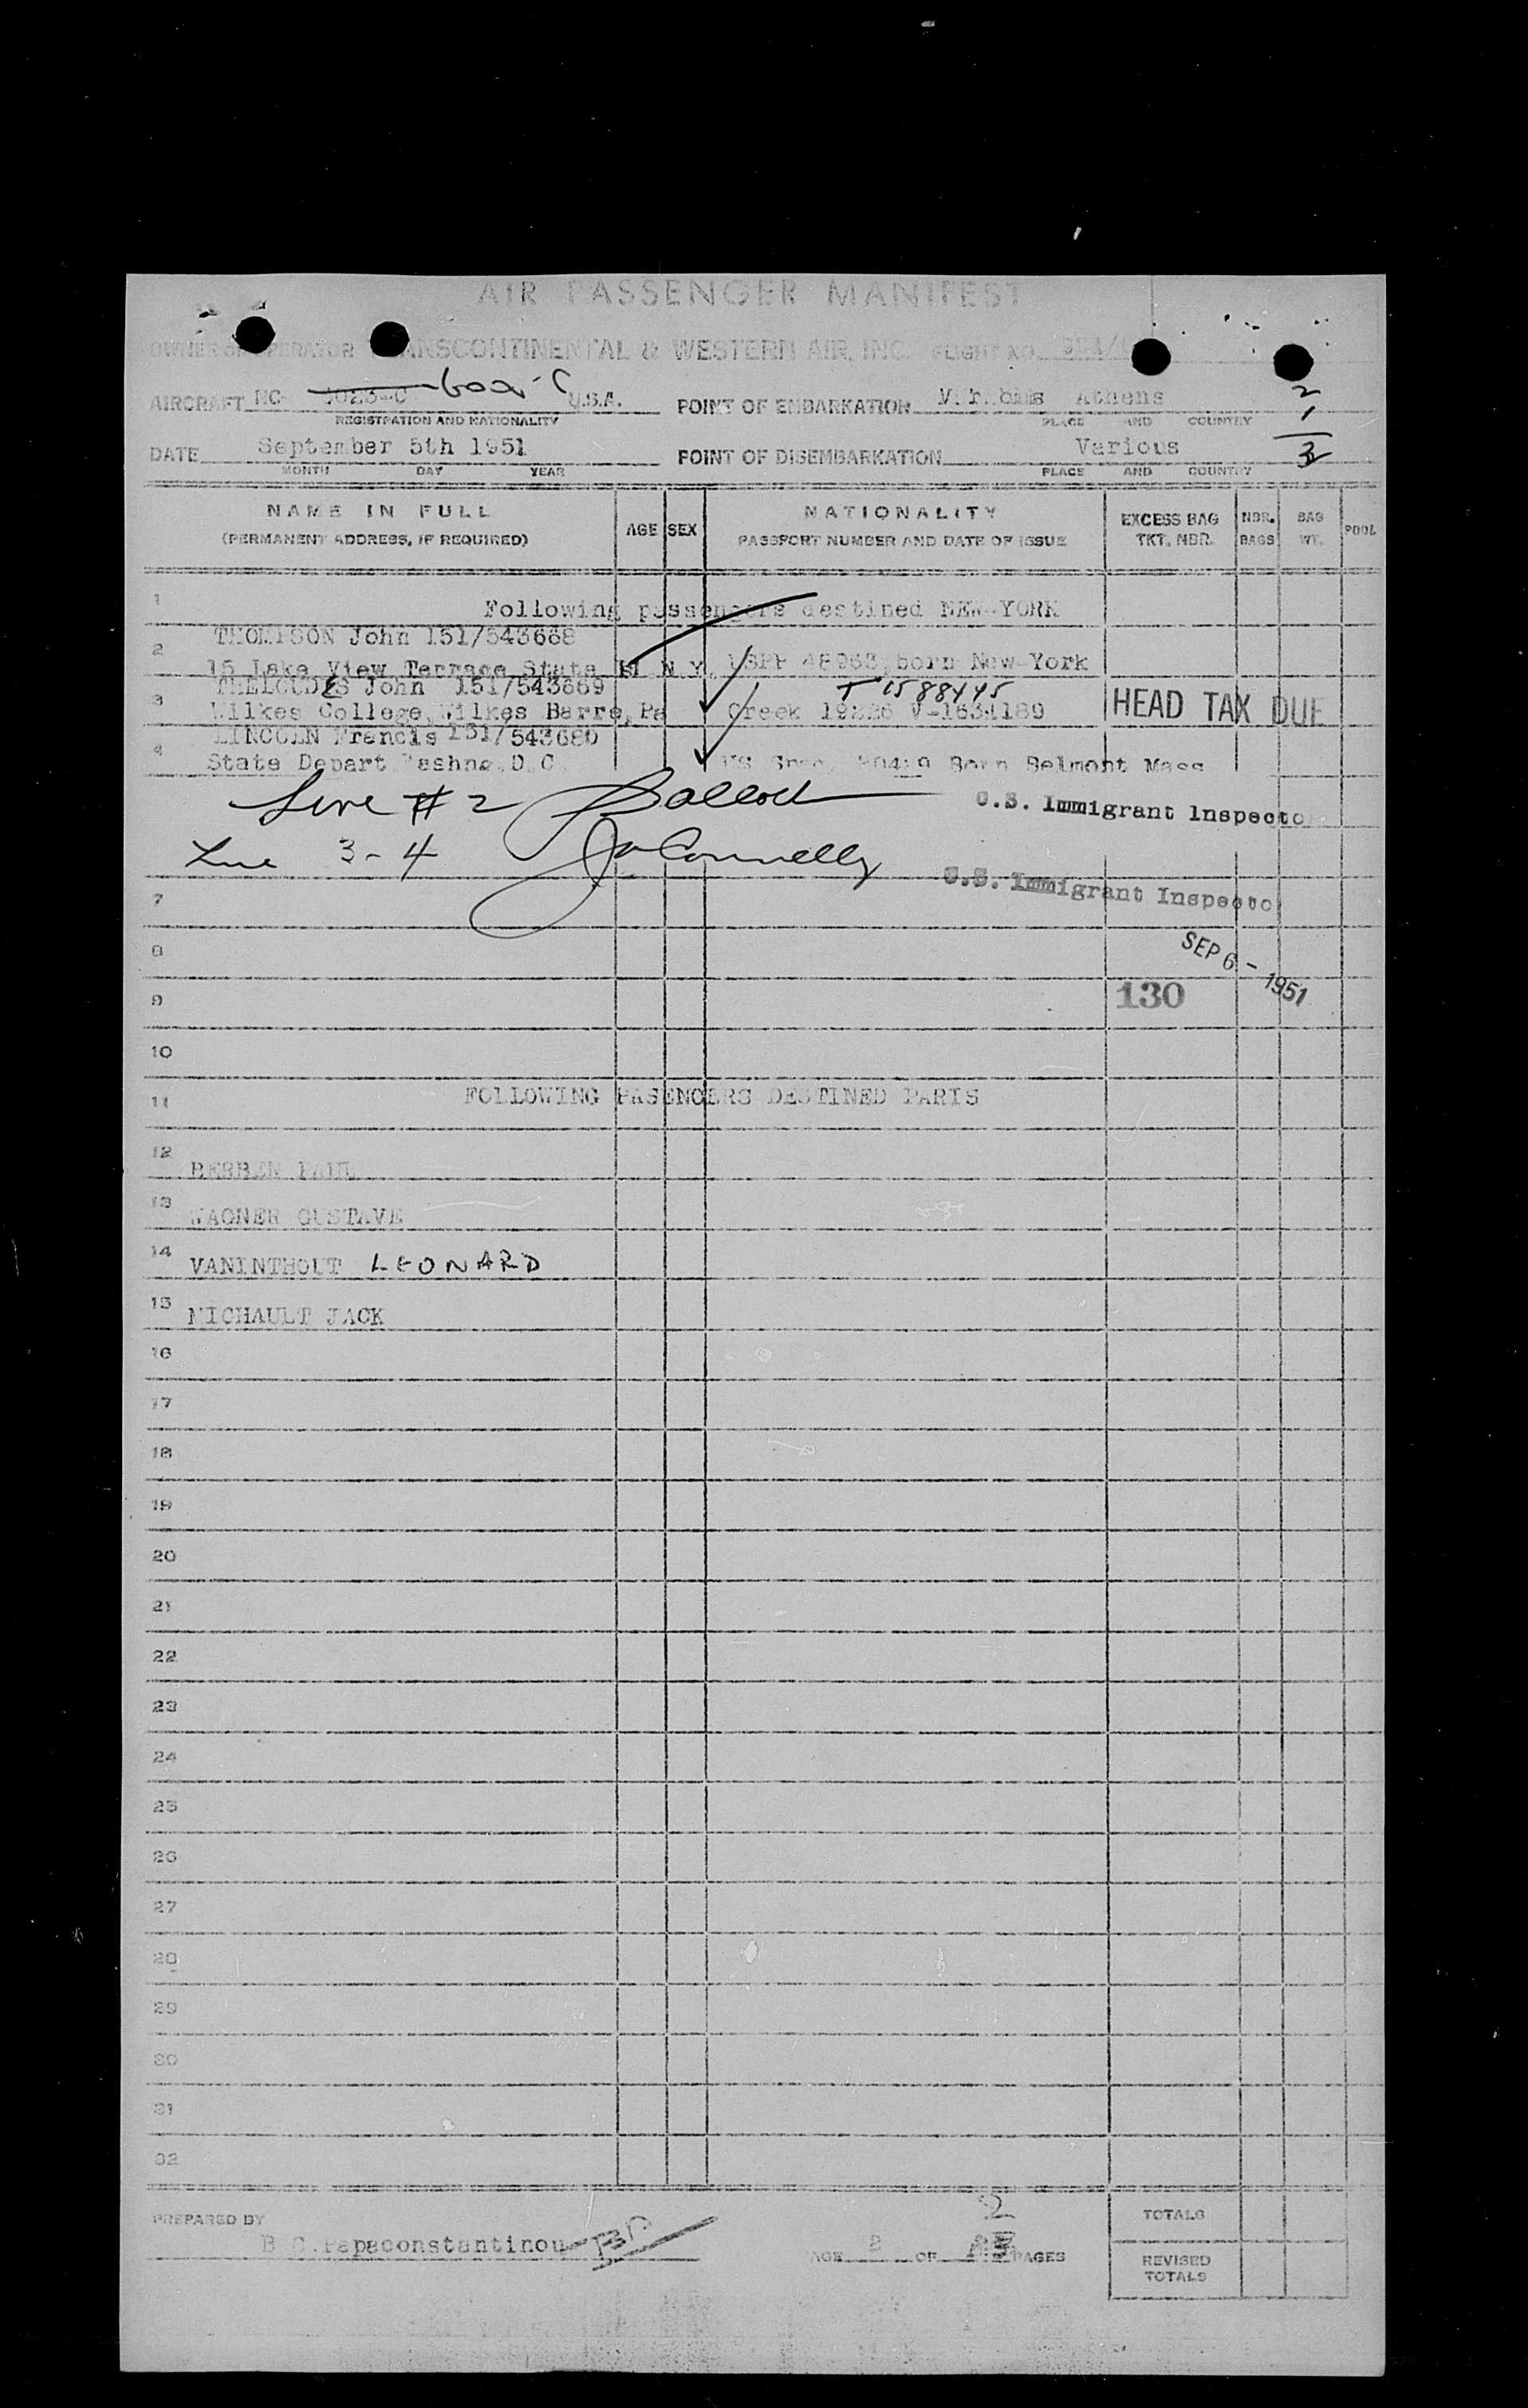 AIR PASSENGER MANIFEST
OWNER OR OPERATOR TRANSCONTINENTAL & WESTERN AIR, INC. FLIGHT NO.
AIRCRAFT NC- U.S.A. POINT OF EMBARKATION Athens
REGISTRATION AND NATIONALITY PLACE AND COUNTRY
2
1
3
DATE September 5th 1951 POINT OF DISEMBARKATION Various
MONTH DAY YEAR PLACE AND COUNTRY
NAME IN FULL AGE SEX NATIONALITY EXCESS BAG NBR. BAG POOL
(PERMANENT ADDRESS, IF REQUIRED) PASSPORT NUMBER AND DATE OF ISSUE TKT. NBR. BAGS WT.
1 Following passengers destined NEW-YORK
THOMPSON John 151/543668
2 15 Lake View Terrace State N.Y. USPP 48963, born New-York
John 151/543669 T 1588445
3 Wilkes College, Wilkes Barre, Pa Greek 19226 V-1634189 HEAD TAX DUE
LINCOLN Francis 151/543680
4 State Depart Washng. D.C. US Born Belmont Mass
Line #2 U.S. Immigrant Inspector
Line 3-4 Connelly
U.S. Immigrant Inspector
7
8 SEP 6 - 1951
9 130
10
11 FOLLOWING PASENGERS DESTINED PARIS
12 BERBEN PAUL
13 WAGNER GUSTAVE
14 VANINTHOUT LEONARD
15 MICHAULT JACK
16
17
18
19
20
21
22
23
24
25
26
27
28
29
30
31
32
PREPARED BY 2 TOTALS
B.C. Papaconstantinou PAGE 2 OF PAGES
REVISED
TOTALS